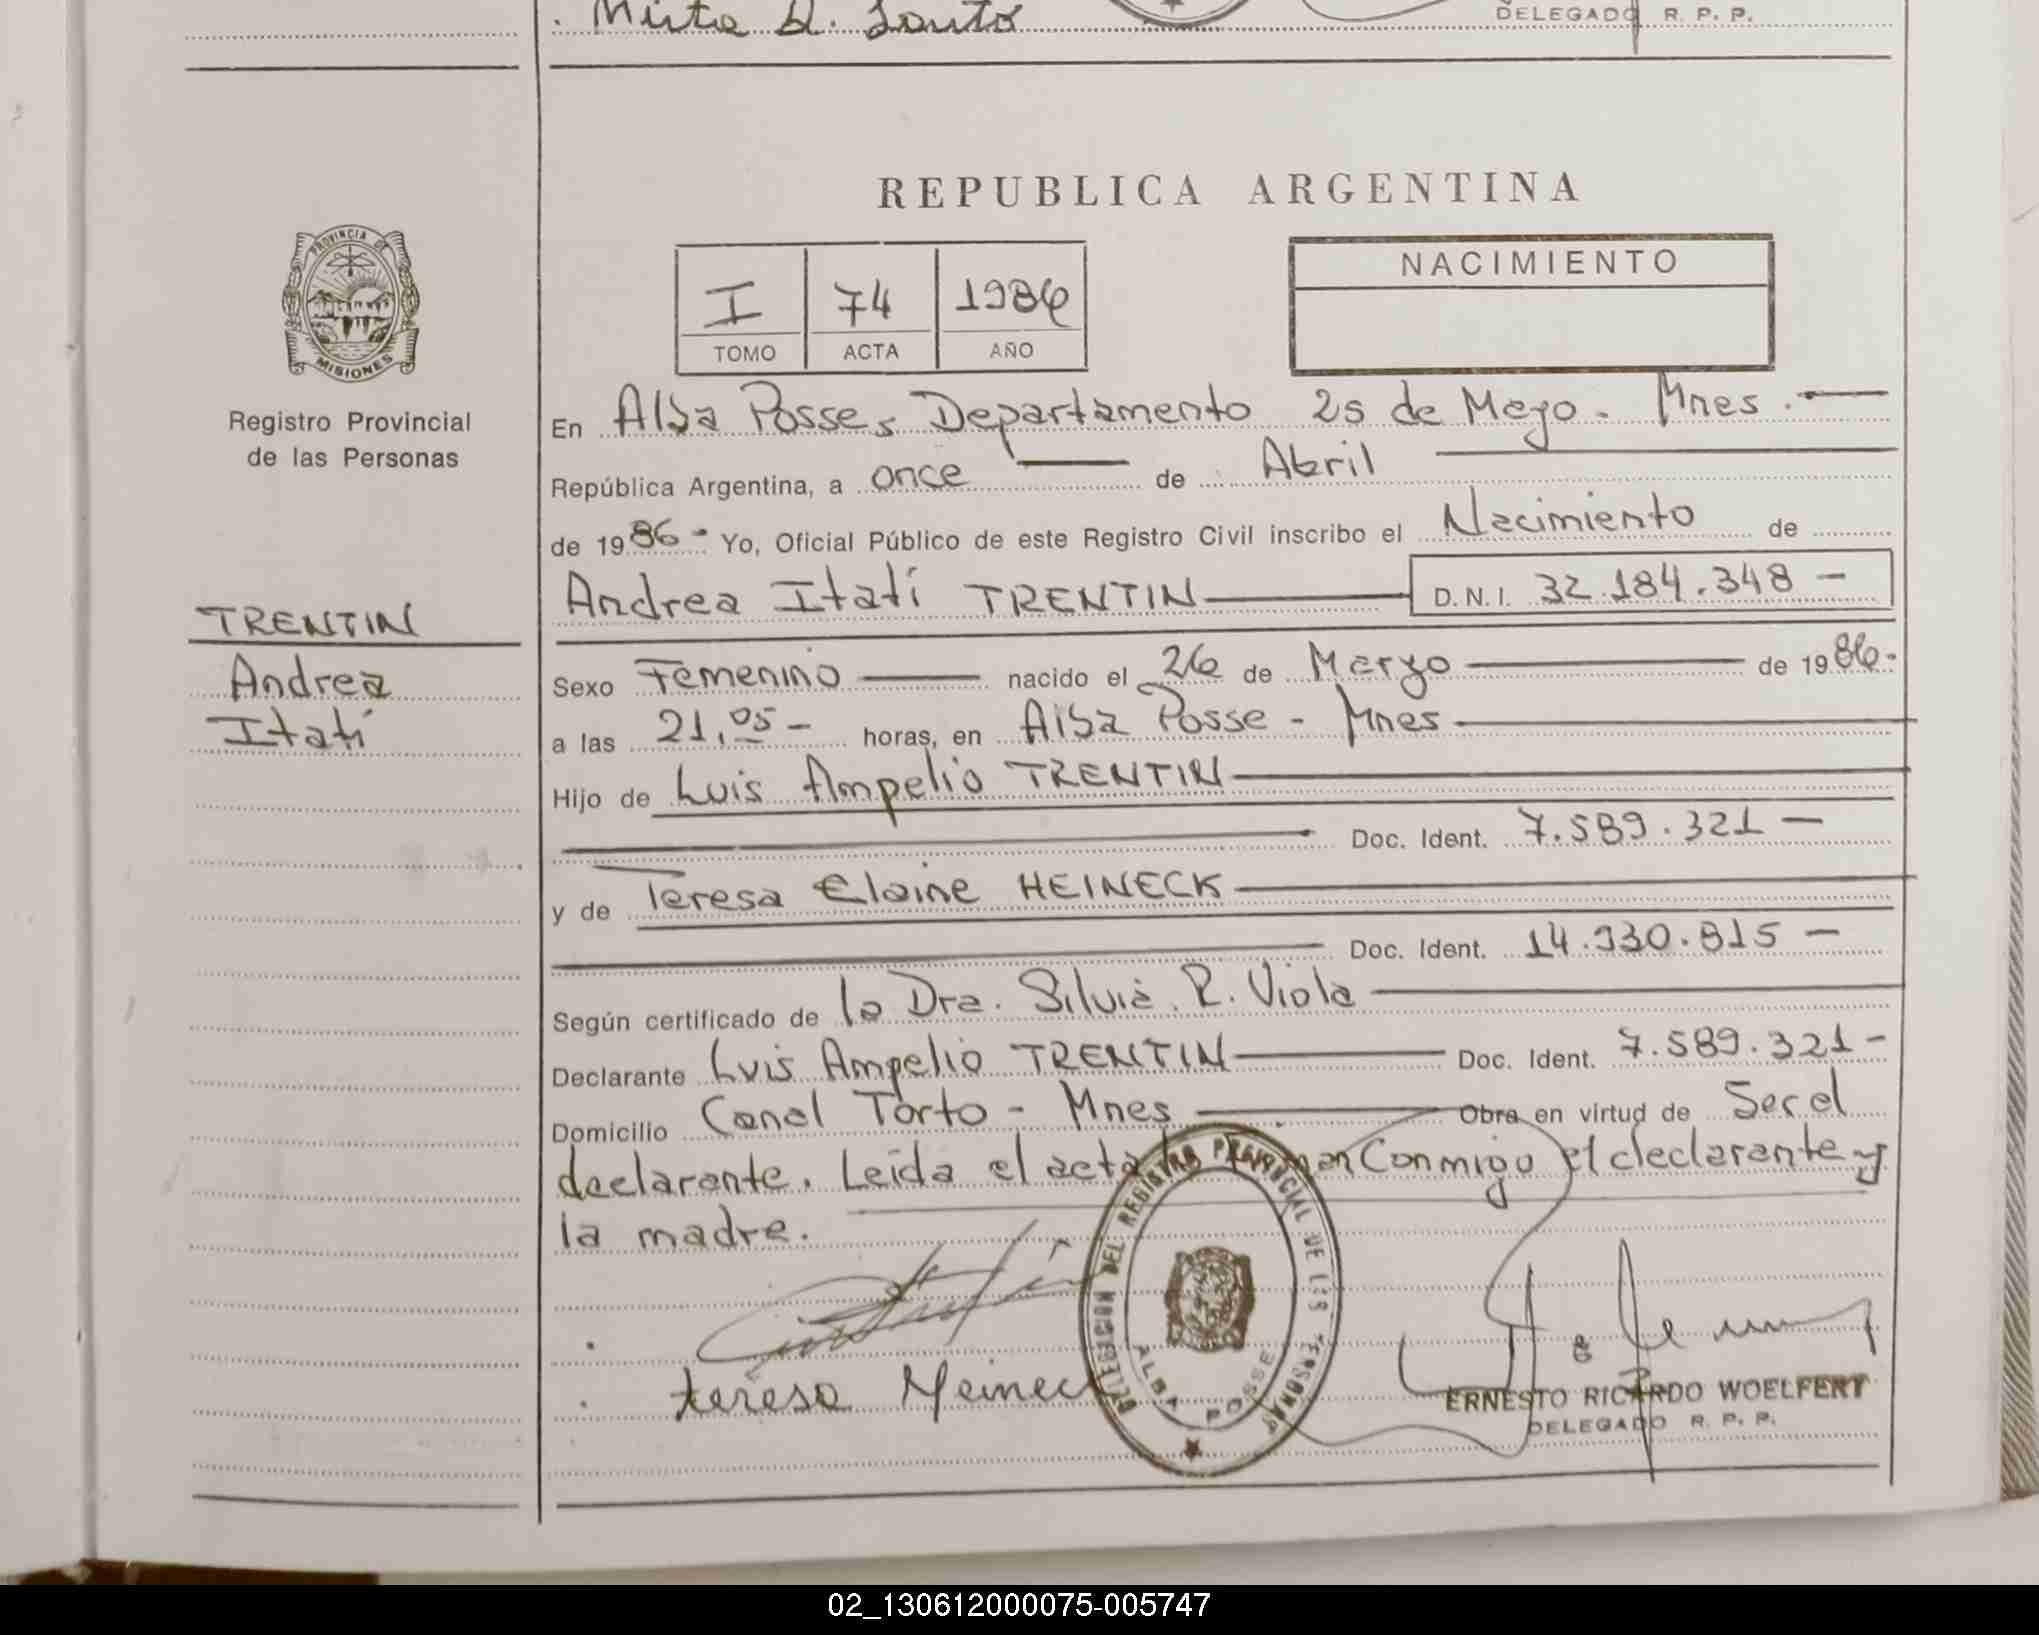 . Mirta A. Souto
DELEGADO R. P. P.
REPUBLICA ARGENTINA
PROVINCIA DE
MISIONES
Registro Provincial
de las Personas
I 74 1986
TOMO ACTA AÑO
NACIMIENTO
En Alba Posse, Departamento 25 de Mayo - Mnes.—
República Argentina, a once — de Abril —
de 1986- Yo, Oficial Público de este Registro Civil inscribo el Nacimiento de
Andrea Itatí TRENTIN— D.N.I. 32.184.348 -
TRENTIN
Andrea
Itatí
Sexo Femenino — nacido el 26 de Marzo — de 1986.
a las 21,05 - horas, en Alba Posse - Mnes —
Hijo de Luis Ampelio TRENTIN —
— Doc. Ident. 7.589.321 —
y de Teresa Elaine HEINECK —
— Doc. Ident. 14.930.815 —
Según certificado de la Dra. Silvia R. Viola —
Declarante Luis Ampelio TRENTIN — Doc. Ident. 7.589.321 -
Domicilio Canal Torto - Mnes — Obra en virtud de Ser el
declarante. Leída el acta Firman Conmigo el declarante y
la madre.
DELEGACION DEL REGISTRO PROVINCIAL DE LAS PERSONAS
ALBA POSSE
teresa Heineck
ERNESTO RICARDO WOELFERT
DELEGADO R. P. P.
02_130612000075-005747